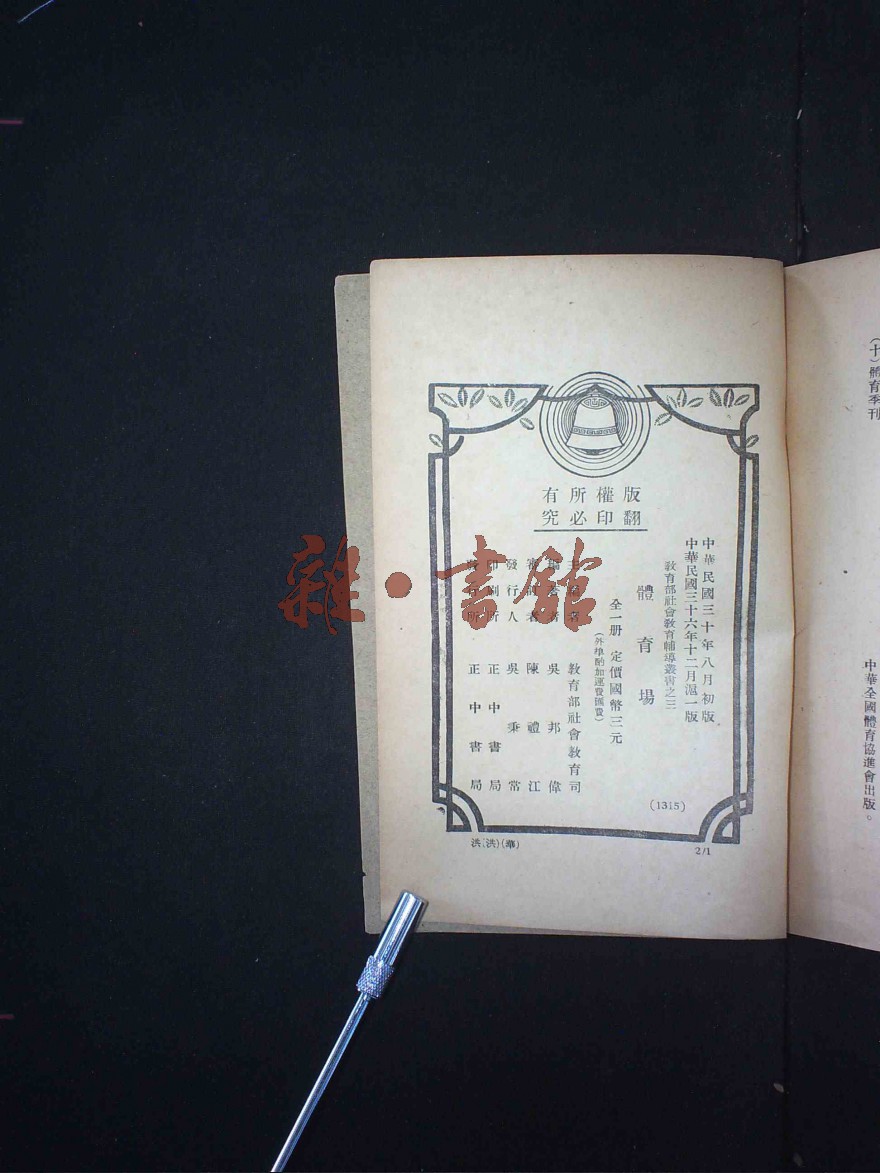 (十)體育季刊
中華全國體育協進會出版。
版權所有
翻印必究
中華民國三十年八月初版
中華民國三十六年十二月滬一版
教育部社會教育輔導叢書之三
體育場
全一册 定價國幣三元
(外埠酌加運費匯費)
主編者 教育部社會教育司
編著者 吳邦偉
審訂者 陳禮江
發行人 吳秉常
印刷所 正中書局
發行所 正中書局
(1315)
洪(洪)(華)
2/1
雜·書館